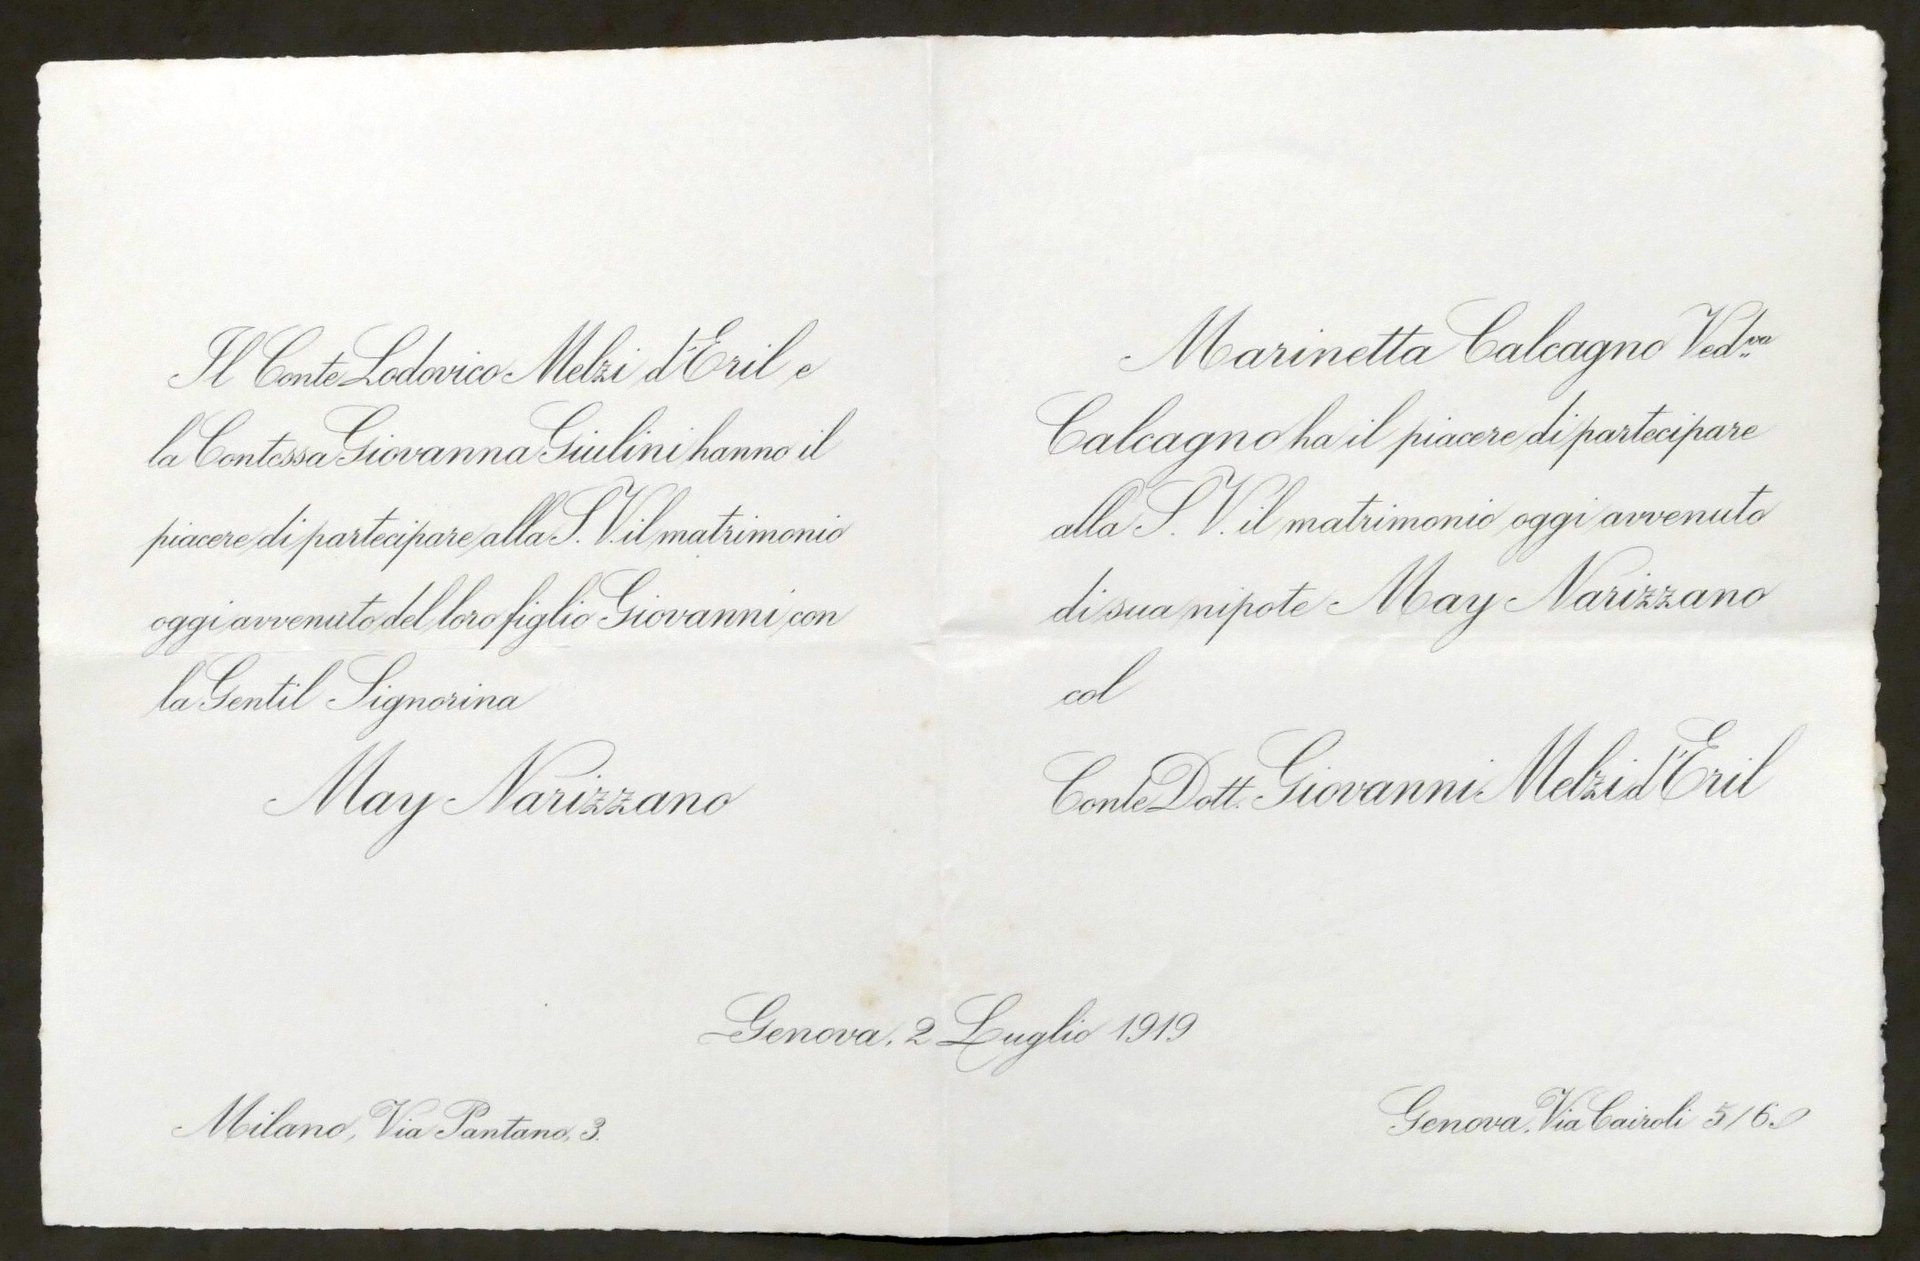 Il Conte Lodovico Melzi d'Eril e
la Contessa Giovanna Giulini hanno il
piacere di partecipare alla S. V. il matrimonio
oggi avvenuto del loro figlio Giovanni con
la Gentil Signorina
May Narizzano
Marinetta Calcagno Ved.va
Calcagno ha il piacere di partecipare
alla S. V. il matrimonio oggi avvenuto
di sua nipote May Narizzano
col
Conte Dott. Giovanni Melzi d'Eril
Genova, 2 Luglio 1919
Milano, Via Pantano, 3.
Genova, Via Cairoli 5/6